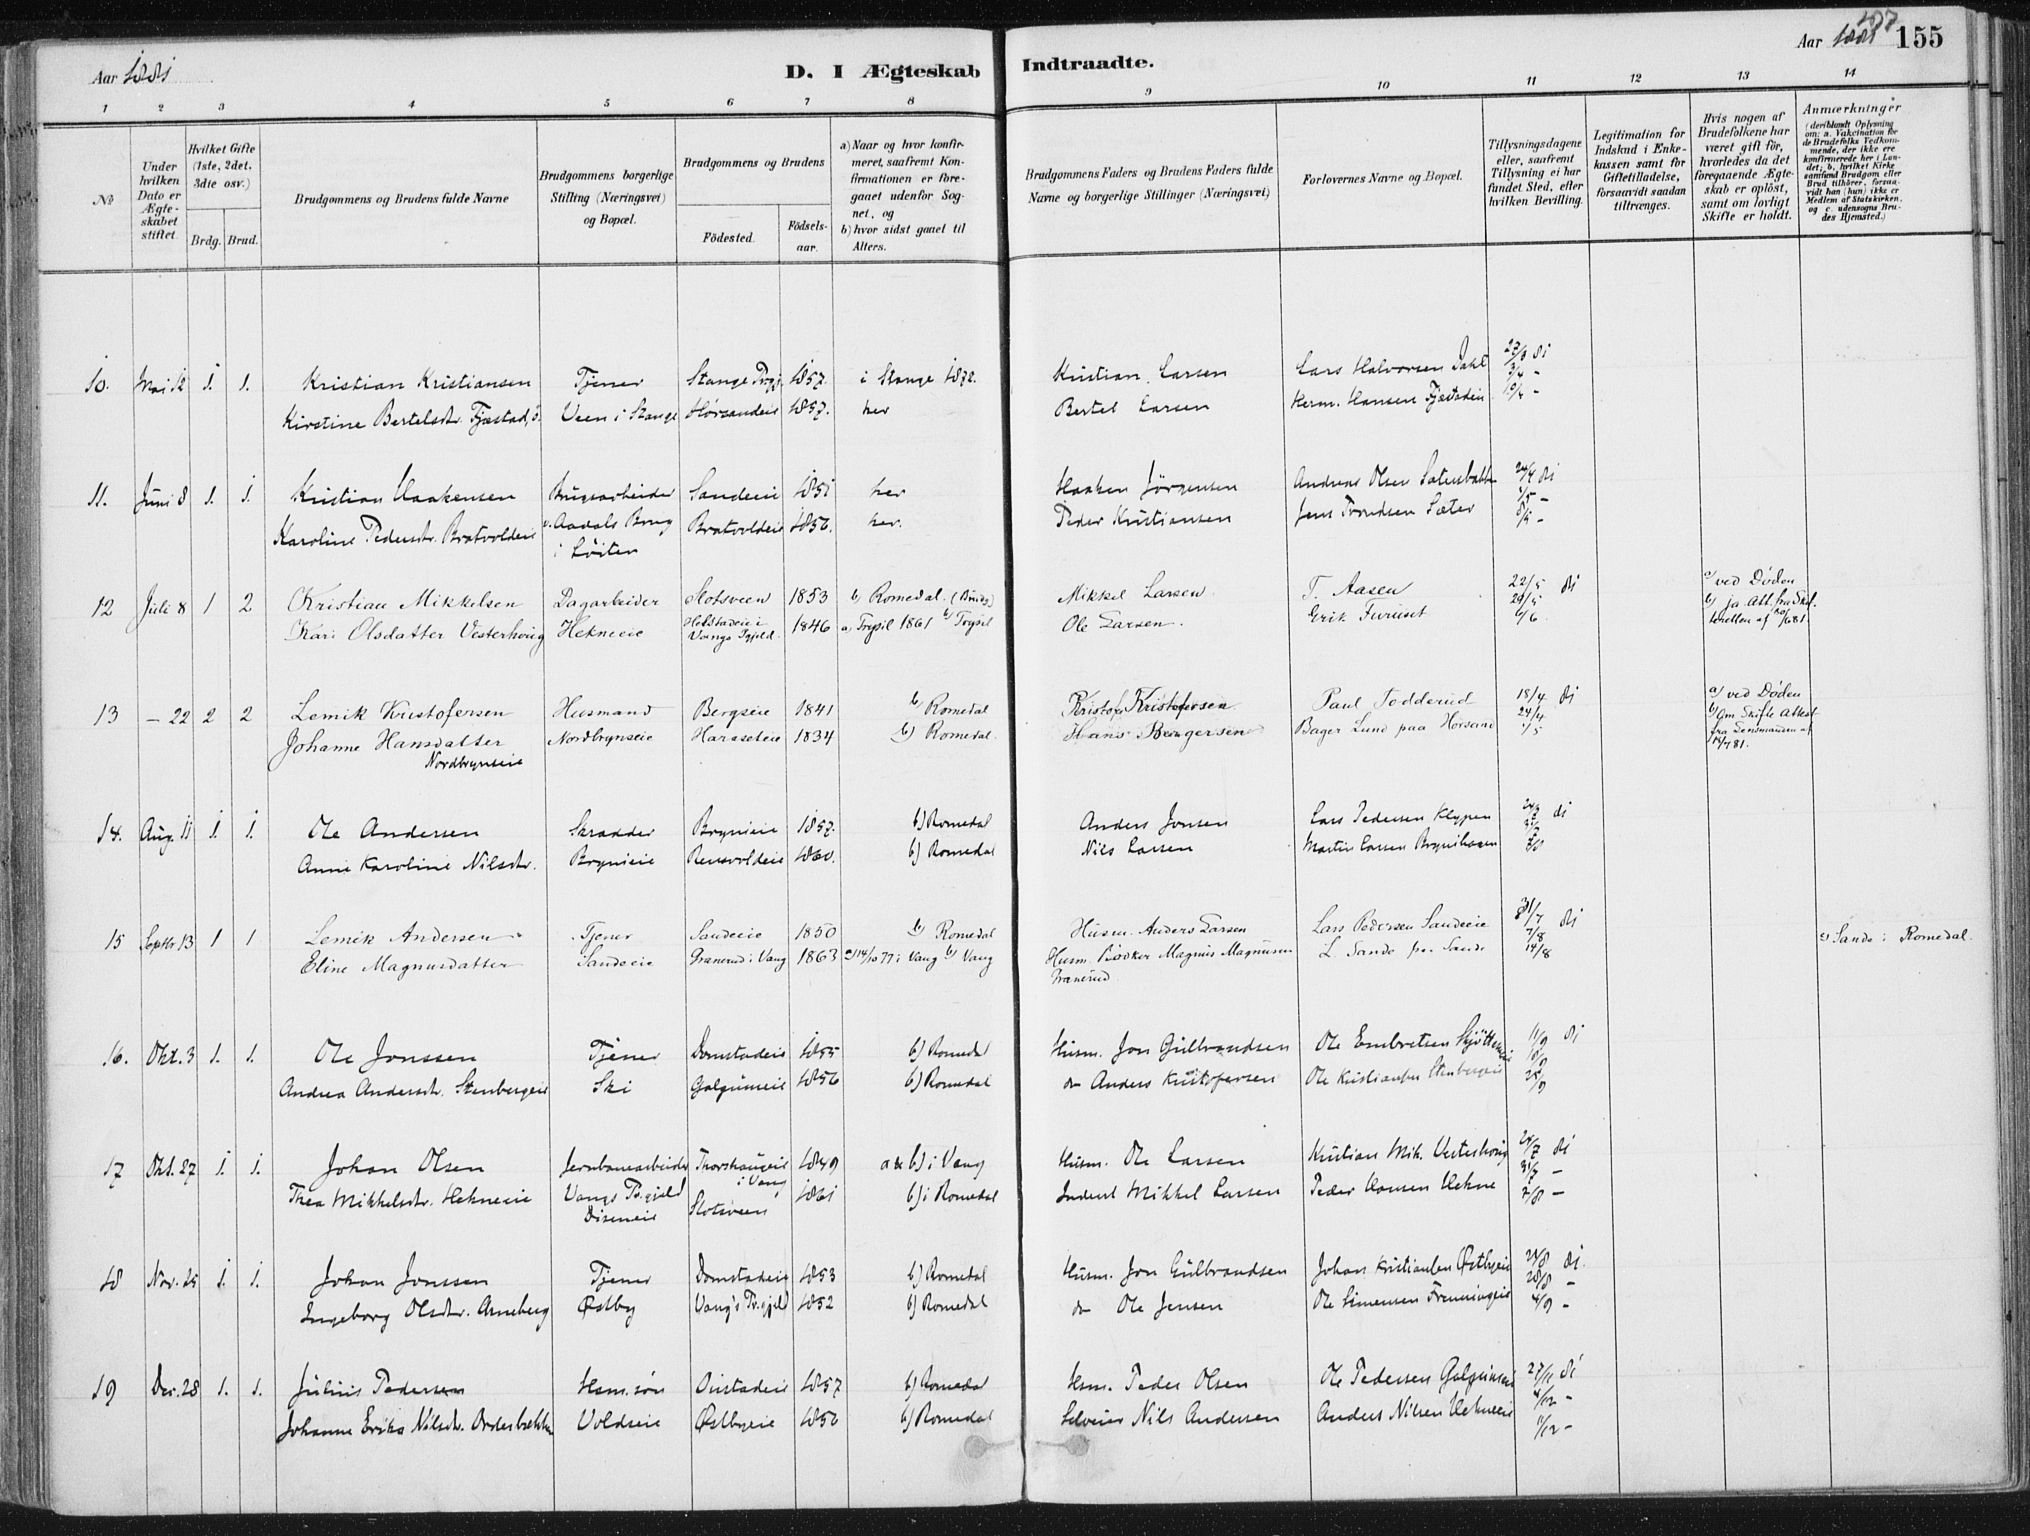 Aar 1881
D. I Ægteskab Indtraadte.
Aar 1881 155
1 2 3 4 5 6 7 8 9 10 11 12 13 14
№
Under hvilken Dato er Ægteskabet stiftet.
Hvilket Gifte (1ste, 2det, 3die osv.)
Brdg. Brud.
Brudgommens og Brudens fulde Navne
Brudgommens borgerlige Stilling (Næringsvei) og Bopæl.
Brudgommens og Brudens
Fødested. Fødselsaar.
a) Naar og hvor konfirmeret, saafremt Konfirmationen er foregaaet udenfor Sognet, og
b) hvor sidst gaaet til Alters.
Brudgommens Faders og Brudens Faders fulde Navne og borgerlige Stillinger (Næringsvei)
Forlovernes Navne og Bopæl.
Tillysningsdagene eller, saafremt Tillysning ei har fundet Sted, efter hvilken Bevilling.
Legitimation for Indskud i Enkekassen samt for Giftetilladelse, forsaavidt saadan tiltrænges.
Hvis nogen af Brudefolkene har været gift før, hvorledes da det foregaaende Ægteskab er opløst, samt om lovligt Skifte er holdt.
Anmærkninger (deriblandt Oplysning om: a. Vakcination for de Brudefolks Vedkommende, der ikke ere konfirmerede her i Landet; b. hvilket Kirkesamfund Brudgom eller Brud tilhører, forsaavidt han (hun) ikke er Medlem af Statskirken, og c. udensogns Brudes Hjemsted.)
10. Mai 12 1. 1. Kristian Kristiansen Tjener Stange Prgj. 1857. i Stange 1872. Kristian Larsen Lars Halvorsen Dahl 27/3 di
Kirstine Bertelsdtr. Fjæstad, Veen i Stange Horsandeie 1857. her Bertel Larsen Herm. Hansen Fjæstadeie 3/4 - 10/4 -
11. Juni 8 1. 1. Kristian Haakensen Brugsarbeider Sandeeie 1851 her Haaken Jörgensen Andreas Olsen 24/4 di
Karoline Pedersdtr. Bratvoldeie v. Aadals Brug Bratvoldeie 1856. her. Peder Kristiansen Jens Trondsen Sæter 1/5 - 8/5 -
i Löiten
12 Juli 8 1 2 Kristian Mikkelsen Dagarbeider Slotsveen 1853 b) Romedal (Brudg) Mikkel Larsen T. Aasen 22/5 di a) ved Döden
Kari Olsdatter Vesterhoug Hekneeie Vangs Pgjeld. 1846 a) Trysil 1861 b) Trysil Ole Larsen. Erik Furuset 29/5 6/6 b) ja Att. fra
13 - 22 2 2 Lemik Kristofersen Husmand Bergseie 1841 b) Romedal Kristof. Kristofersen Paul Todderud 18/4 di a) ved Döden
Johanne Hansdatter Nordbrynseie Haraseteie 1834 b) Romedal. Hans Bengersen Bager Lund paa Horsand 24/4 1/5 b) Om Skifte Attest
Nordbrynseie fra Lensmanden af 14/7 81.
14. Aug. 11 1. 1. Ole Andersen Skrædder Brynieie 1857. b) Romedal Anders Jonsen Lars Pedersen Klypen 24/7 di
Anne Karoline Nilsdtr. Brynieie Rensvoldeie 1860. b) Romedal Nils Larsen Martin Larsen Brynihagen 31/7
15 Septbr 13 1 1 Lemik Andersen Tjener Sandeeie 1850 b) Romedal Husm. Anders Larsen Lars Pedersen Sandeeie 31/7 di c) Sande i Romedal.
Eline Magnusdatter Sandeeie Granerud i Vang 1863 a) 14/10 77 i Vang b) Vang Husm. Magnus Magnussen L. Sande paa Sande 7/8 14/8
Granerud
16. Okt. 3 1. 1. Ole Jonssen Tjener Domstadeie 1855 b) Romedal Husm. Jon Gulbrandsen Ole Embretsen 11/9 di
Andrea Andersdtr. Stenbergeie Ski Galguneie 1856 b) Romedal do Anders Kristofersen Ole Kristiansen Stenbergeie 18/9 25/9
17 Okt. 27 1. 1. Johan Olsen Jernbanearbeider Thorshaugeie i Vang 1849 a & b) i Vang Husm. Ole Larsen Kristian Mik. Vesterhoug 24/7 di
Thea Mikkelsdtr. Hekneeie Vangs Prgjeld Slotsveen 1861 b) i Romedal Inderst Mikkel Larsen Peder Hansen Hekne 31/7 - 7/8 -
Diseneie
18 Nov. 25 1. 1. Johan Jonssen Tjener Domstadeie 1853 b) Romedal Husm. Jon Gulbrandsen Johan Kristiansen Østbyeie 21/8 di.
Ingeborg Olsdtr. Arneberg Østby Vang's Prgjeld 1852 b) Romedal do Ole Jensen Ole Simensen Frenningeie 28/8 - 4/9 -
19 Dec. 28 1. 1. Julius Pedersen Hsm. søn Oustadeie 1857 b) Romedal Hsm. Peder Olsen Ole Pedersen Galguneeie 27/11 di
Johanne Erika Nilsdtr. Ordersbækken Voldseie Østbyeie 1856 b) Romedal Selveier Nils Andersen Anders Nilsen Hekneeie 4/12 - 11/12 -